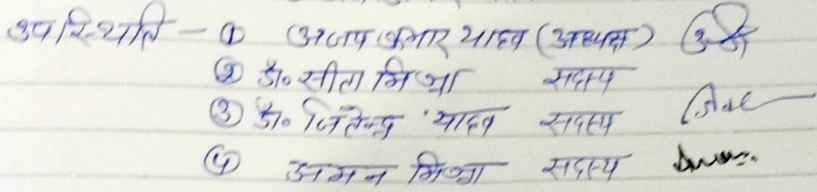 उपस्थिति - ① अजय कुमार यादव (अध्यक्ष)
② डॉ० सीता मिश्रा सदस्य
③ डॉ० जितेन्द्र यादव सदस्य
④ अमन मिश्रा सदस्य